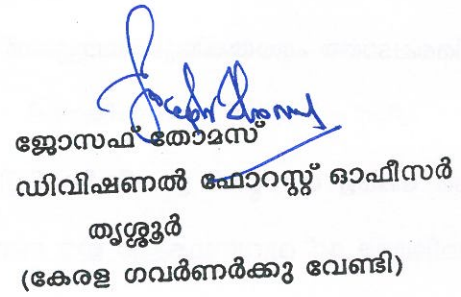 Joseph Thomas
ജോസഫ് തോമസ്
ഡിവിഷണൽ ഫോറസ്റ്റ് ഓഫീസർ
തൃശ്ശൂർ
(കേരള ഗവർണർക്കു വേണ്ടി)